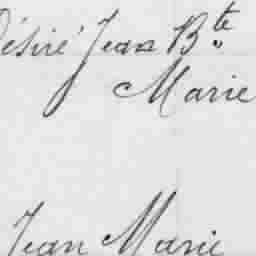 Désiré Jean Bte
Marie
Jean Marie